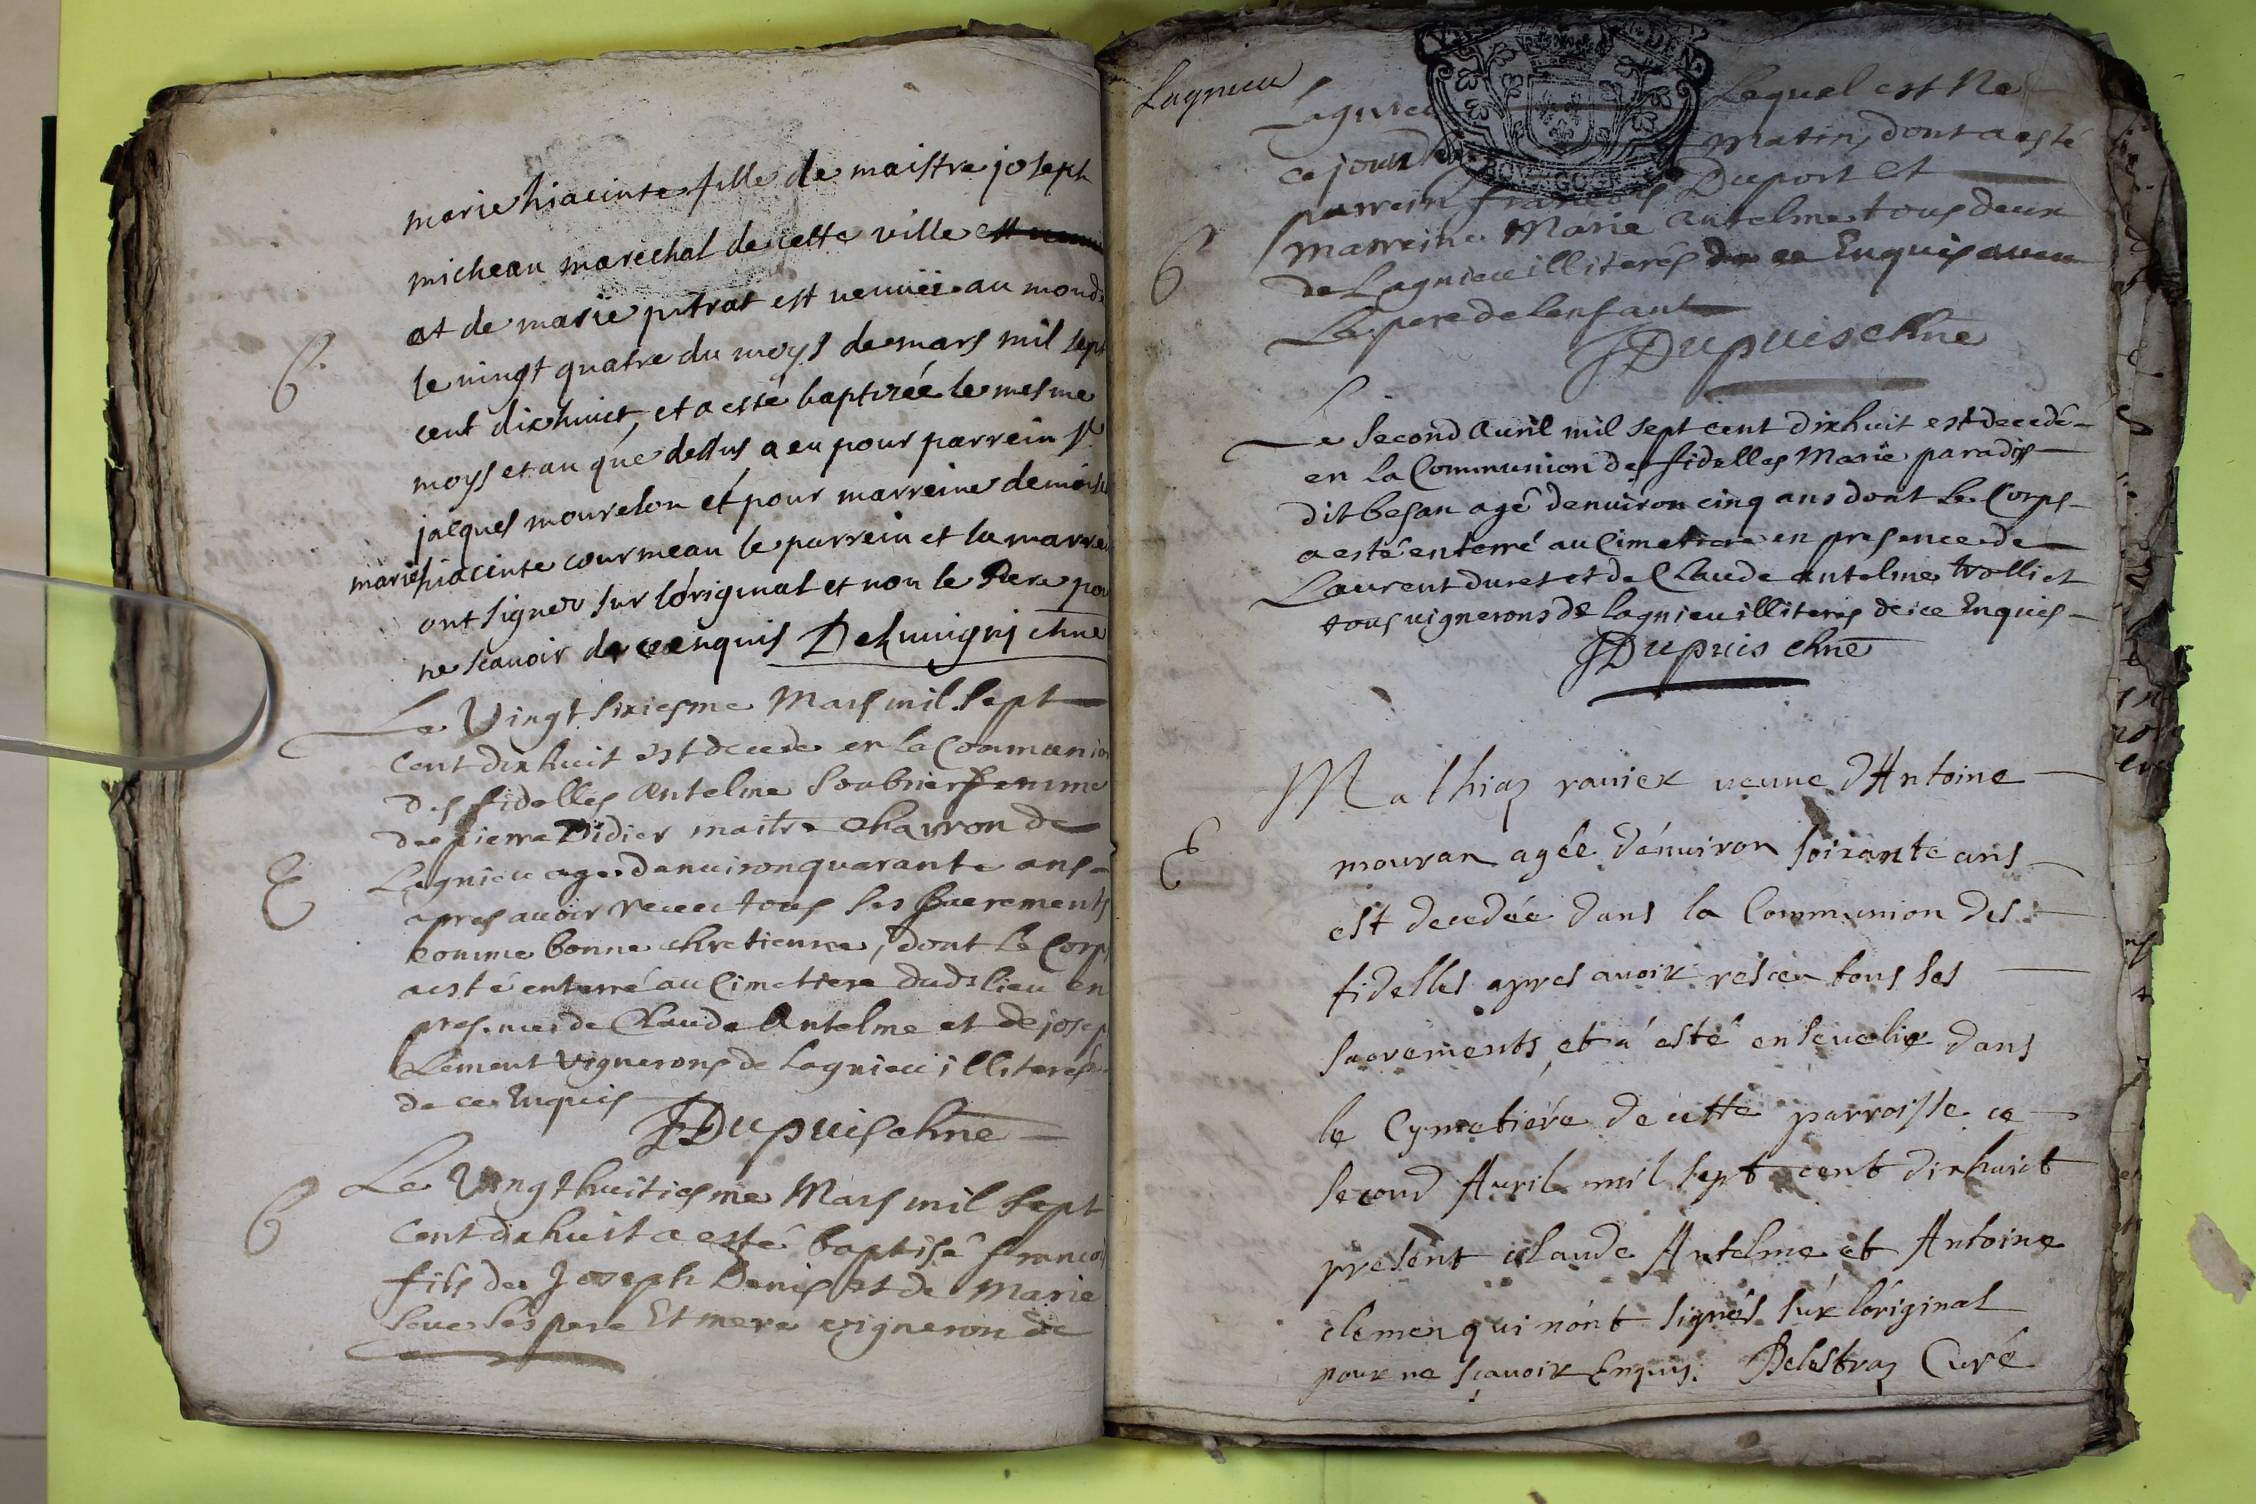 marie hiacinte fille de maistre joseph
micheau marechal de cette ville est
et de marie putrat est venuüe au monde
B. le vingt quatre du moys de mars mil sept
cent dix huict, et a esté baptizée le mesme
moys et an que dessus a eu pour parrein Sr
jacques mourelon et pour marreine demoise
marie hiacinte courmeau le parrein et la marrei
ont signer sur lóriginal et non le Pere pour
ne scavoir de ce enquis chne
Le Vingt sixiesme Mars mil sept
Cent dix huit est decede en la Communion
des fidelles Antelme Soubrier femme
de pierre Didier maitre charron de
E Lagnieu age denuiron quarante ans
apres auoir receu tous ses Sacrements
comme bonne chretienne, dont le Corps
a esté enterré au Cimetiere dudt lieu en
presence de Claude Antelme et de josep
Clement Vignerons de Lagnieu illiterés
de ce Enquis
JDupuis chne
B Le Vingt huitiesme Mars mil sept
Cent dix huit a esté baptisé francois
fils de Joseph Denis et de Marie
Seue ses pere Et mere vigneron de
Lagnieu
Lagnieu Lequel est Ne
ce jourd matin, dont a esté
parrein francois Duport et
B marreine Marie Antelme tous deux
de Lagnieu illiterés de ce Enquis avec
Le pere de lenfant
JDupuis chne
Le Second Auril mil sept cent dixhuit est decedé
en la Communion des fidelles Marie paradis
dit besan agé denuiron cinq ans dont le Corps
a esté enterré au Cimetiere en presence de
Laurent duret et de Claude Antelme trolliet
tous vignerons de lagnieu illiteres de ce Enquis
JDupuis chne
Mathias rauier veuue d'Antoine
E mouran agée d'énuiron soixante ans
est decedée dans la Communion des
fidelles apres auoir resceu tous ses
sacrements, et a esté enseuelie dans
le Cymetiére de cette parroisse ce
second Auril mil sept cent dixhuict
present claude Antelme et Antoine
clemen qui nónt signés súr lóriginal
pour ne sçauoir Enquis. Delestraz Curé